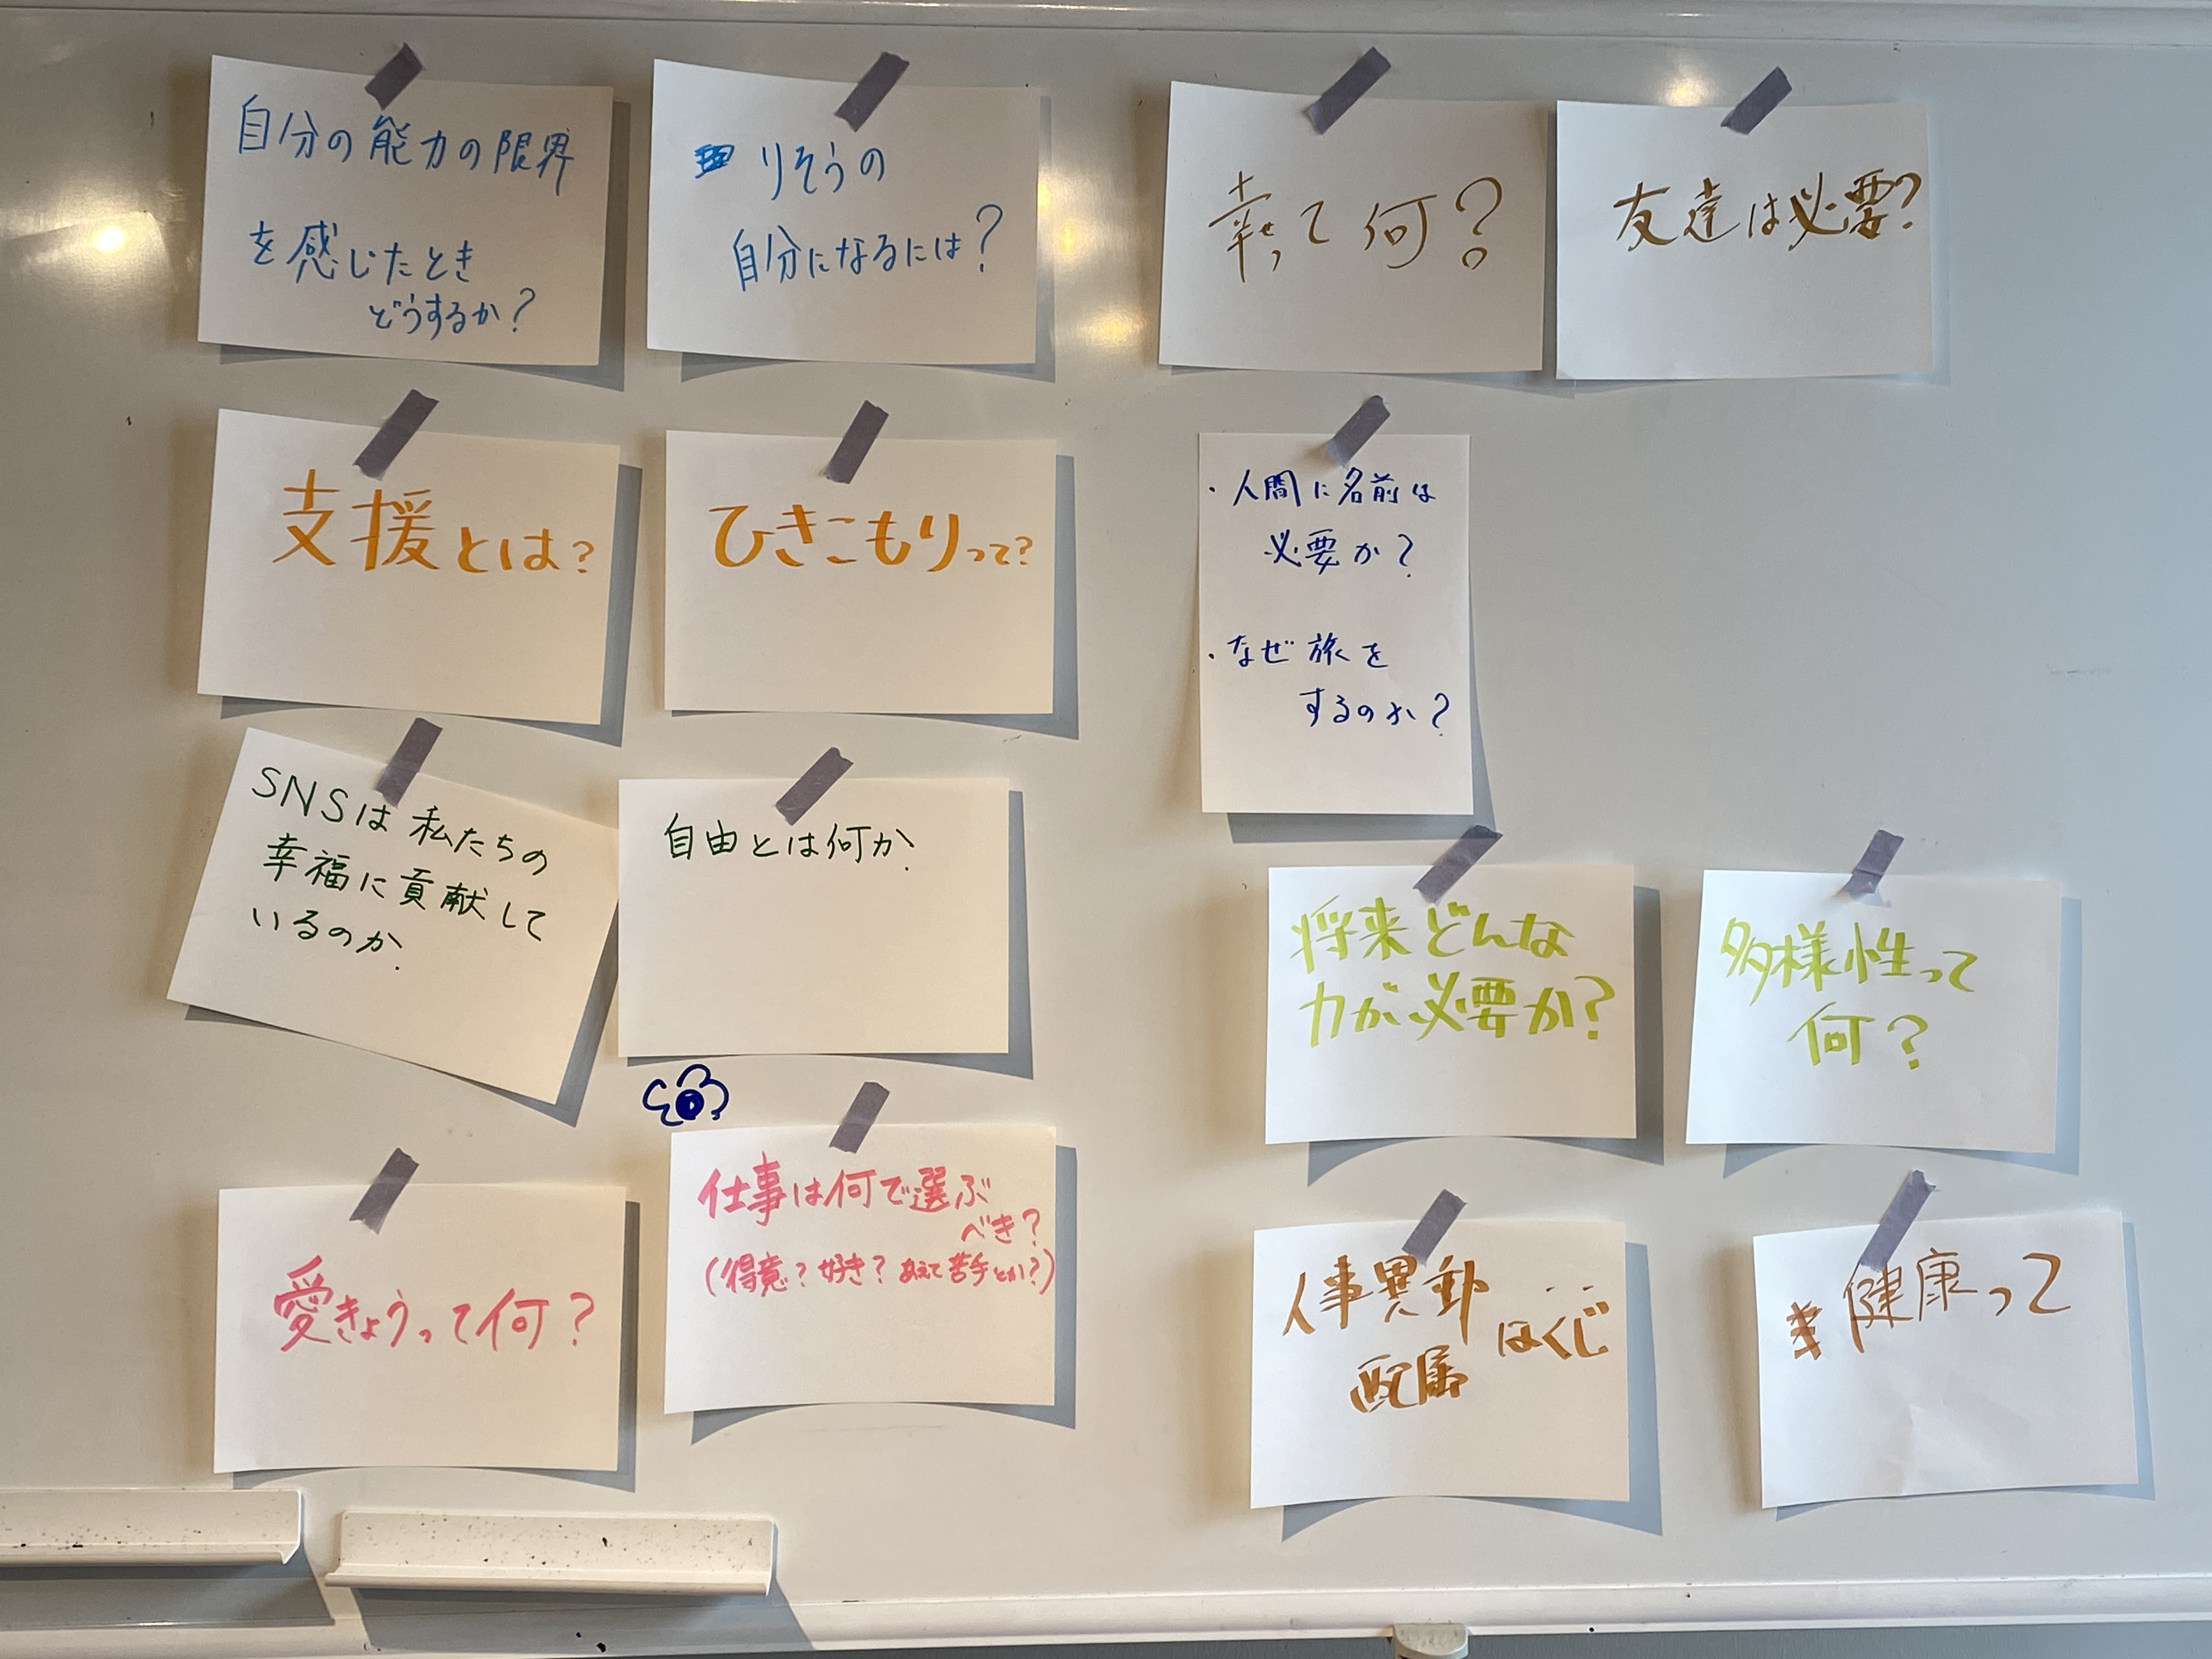 自分の能力の限界
を感じたとき
どうするか?
りそうの
自分になるには?
幸せって何?
友達は必要?
支援とは?
ひきこもりって?
・人間に名前は
必要か?
・なぜ旅を
するのか?
SNSは私たちの
幸福に貢献して
いるのか.
自由とは何か.
将来どんな
力が必要か?
多様性って
何?
愛きょうって何?
仕事は何で選ぶ
べき?
(得意?好き?あえて苦手とか?)
人事異動
配属
はくじ
健康って